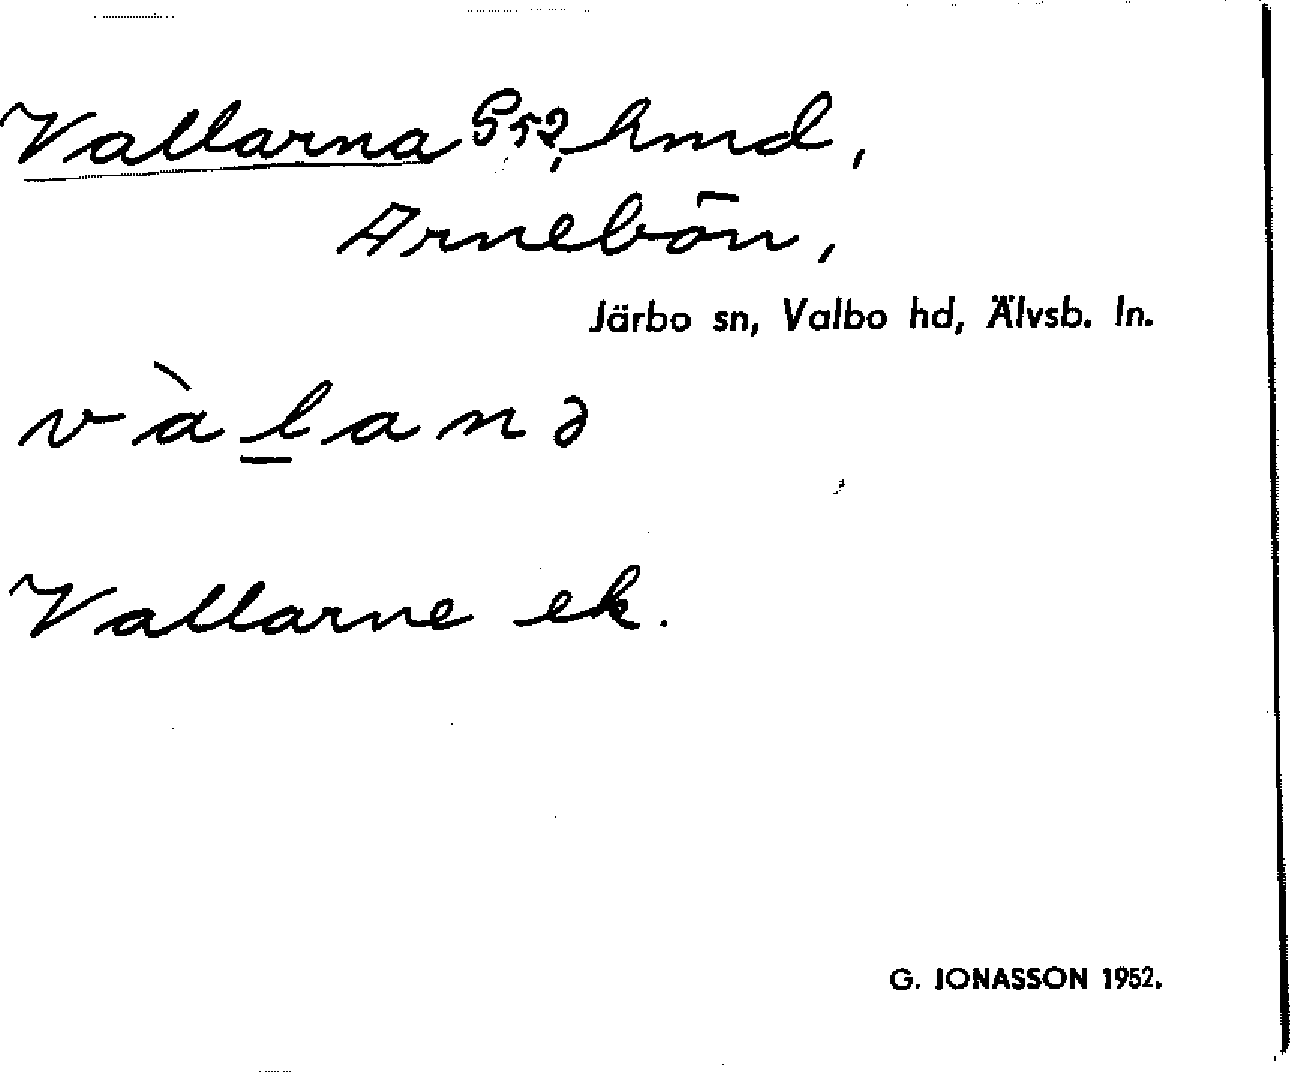 Vallarna G52, hmd,
Arnebön,
Järbo sn, Valbo hd, Älvsb. ln.
vàlanə
Vallarne ek.
G. JONASSON 1952.